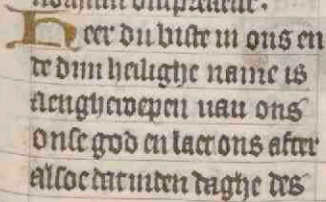 Heer du biste in ons en
de dijn heilighe name is
aengheroepen van ons
onse god en laet ons after
alsoe datmiden daghe des